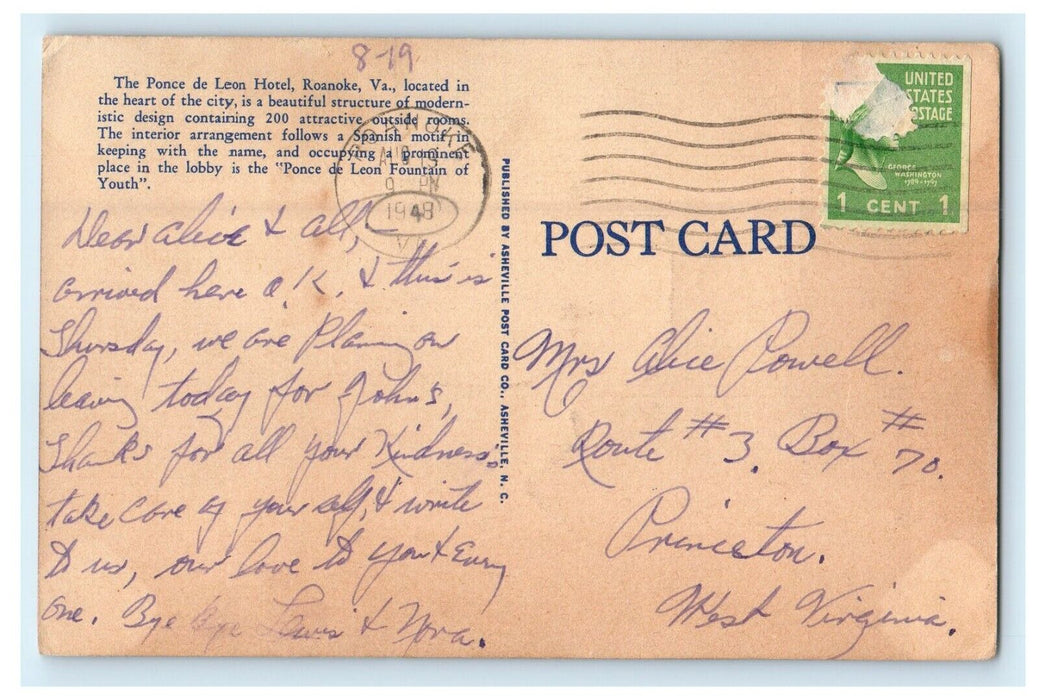 8-19
The Ponce de Leon Hotel, Roanoke, Va., located in
the heart of the city, is a beautiful structure of modern-
istic design containing 200 attractive outside rooms.
The interior arrangement follows a Spanish motif in
keeping with the name, and occupying a prominent
place in the lobby is the "Ponce de Leon Fountain of
Youth".
ROANOKE
AUG
9 PM
1948
VA
UNITED
STATES
POSTAGE
GEORGE
WASHINGTON
1789-1797
1 CENT 1
PUBLISHED BY ASHEVILLE POST CARD CO., ASHEVILLE, N. C.
POST CARD
Dear Alice & all,
arrived here O.K. & this is
Thursday, we are Planing on
leaving today for John's,
Thanks for all your Kindness,
take care of your self, & write
to us, our love to you & Every
one. Bye bye Lewis & Nora.
Mrs Alice Powell.
Route #3, Box #70.
Princeton.
West Virginia.